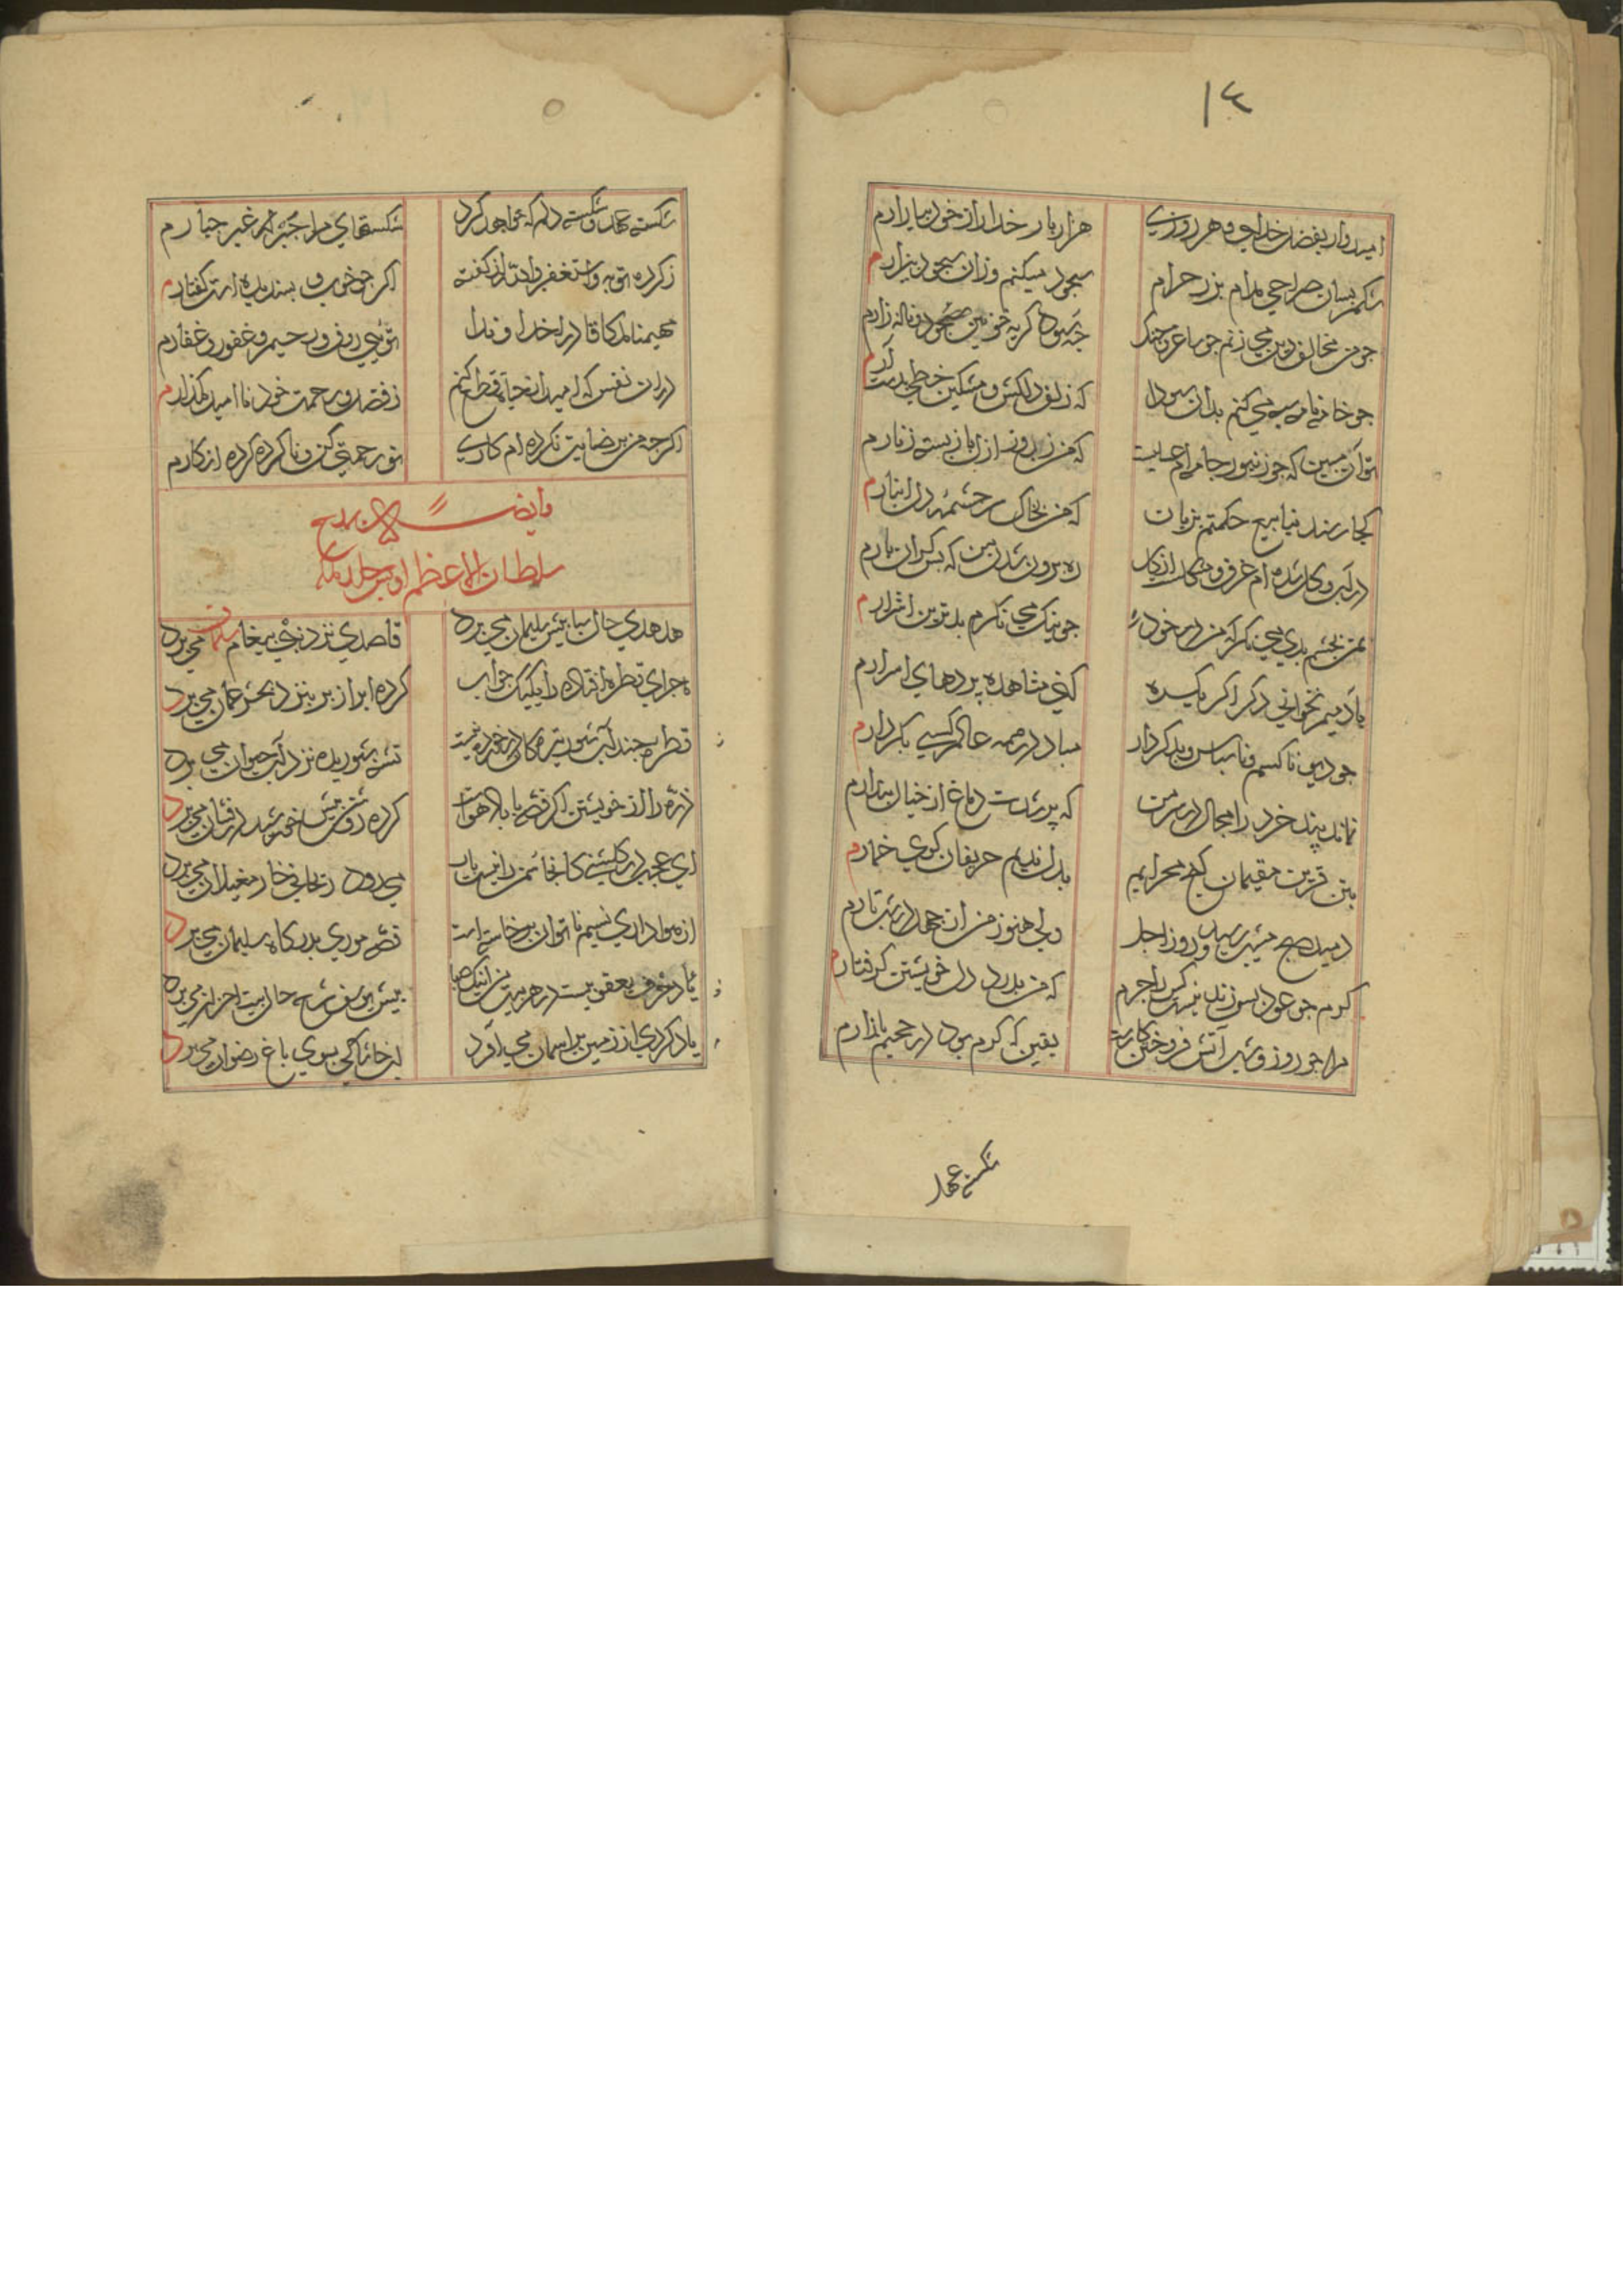 ١٤
امیدوار بفضل خدایم و هر روزی
هزار بار خدا را از خود بیازارم
شکم بسان صراحی مدام بزر حرام
سجود میکنم وزان سجود بیزارم
جو من مخالف دین می زنم جو ساغر و جنک
جه سود کریه خونین و ناله زارم
جو خانه نامه سیه می کنم بدان سودا
که زلف دلکش و مشکین خطی بدست آرم
تو آن مبین که جو زنبور جامه ام عسلیست
که من زاندرون از بار بسته زنارم
کجا رسند ینابیع حکمتم بزبان
که من بخاک سر جشمه دل انبارم
در آب و کل شده ام غرق و مشکلست از کل
ره برون شدن من که بس کران بارم
بمن بجشم بدی می نکر که من در خود
جو نیک می نکرم بدترین اشرارم
یاد میم نخوانی دکر اکر یکره
کنی مشاهده پردهای اسرارم
جو دیو ناکسم و ناسباس و بدکردار
مباد در همه عالم کسی بکردارم
نماند پند خرد را مجال در سر من
که پر شدست دماغ از خیال پندارم
بتن قرین مقیمان کنج محرابم
بدل ندیم حریفان کوی خمارم
دمید صبح مشیب رسید روز اجل
ولی هنوز من از جهل در شب تارم
کرم جو عود بسوزند نیست کس را جرم
که من بدرد دل خویشتن کرفتارم
مرا جو روز و شب آتش فروختن کارست
یقین که کرم بود در جحیم بازارم
شکسته عهد
شکسته عهد و شکسته دلم که خواهد کرد
شکستهای مرا جبر جز غیر جبارم
ز کرده توبه و استغفر الله از کفته
اکر جه خوب و بسندیده است کفتارم
مهیمنا ملکا قادرا خداوندا
توئی رؤف و رحیم و غفور و غفارم
در ان نفس که امید از حیات قطع کنم
ز فضل و رحمت خود نا امید مکذارم
اکرجه من برضایت نکرده ام کاری
تو رحمتی کن و ناکرده کرده انکارم
وایضا در مدح
سلطان الاعظم اویس خلد ملکه
هدهدی حال سبا بیش سلیمان می برد
قاصدی نزد نبی پیغام سلمان می برد
ماجرای قطره افتاده را بیک جواب
کرده ابراز بر بنزد بحر عمان می برد
قطره جند آب شور تیره کان در خورد نیست
تشنه شوریده نزد آب حیوان می برد
ذره را از خویشتن اکر قصه با بالا هواست
کرده روشن بیش خورشید درفشان می برد
ای عجب در کلشنی کانجا سمن را نیست بار
می رود ریحانی خار مغیلان می برد
از هواداری نسیم ناتوان برخاسته است
قصه موری بدرکاه سلیمان می برد
یادم خوف یعقوبیست در هر بیت من اینک صبا
بیش یوسف شمه حال بیت احزان می برد
یاد کردی از زمین بر اسمان می آورد
از خاشاکی بسوی باغ رضوان می برد